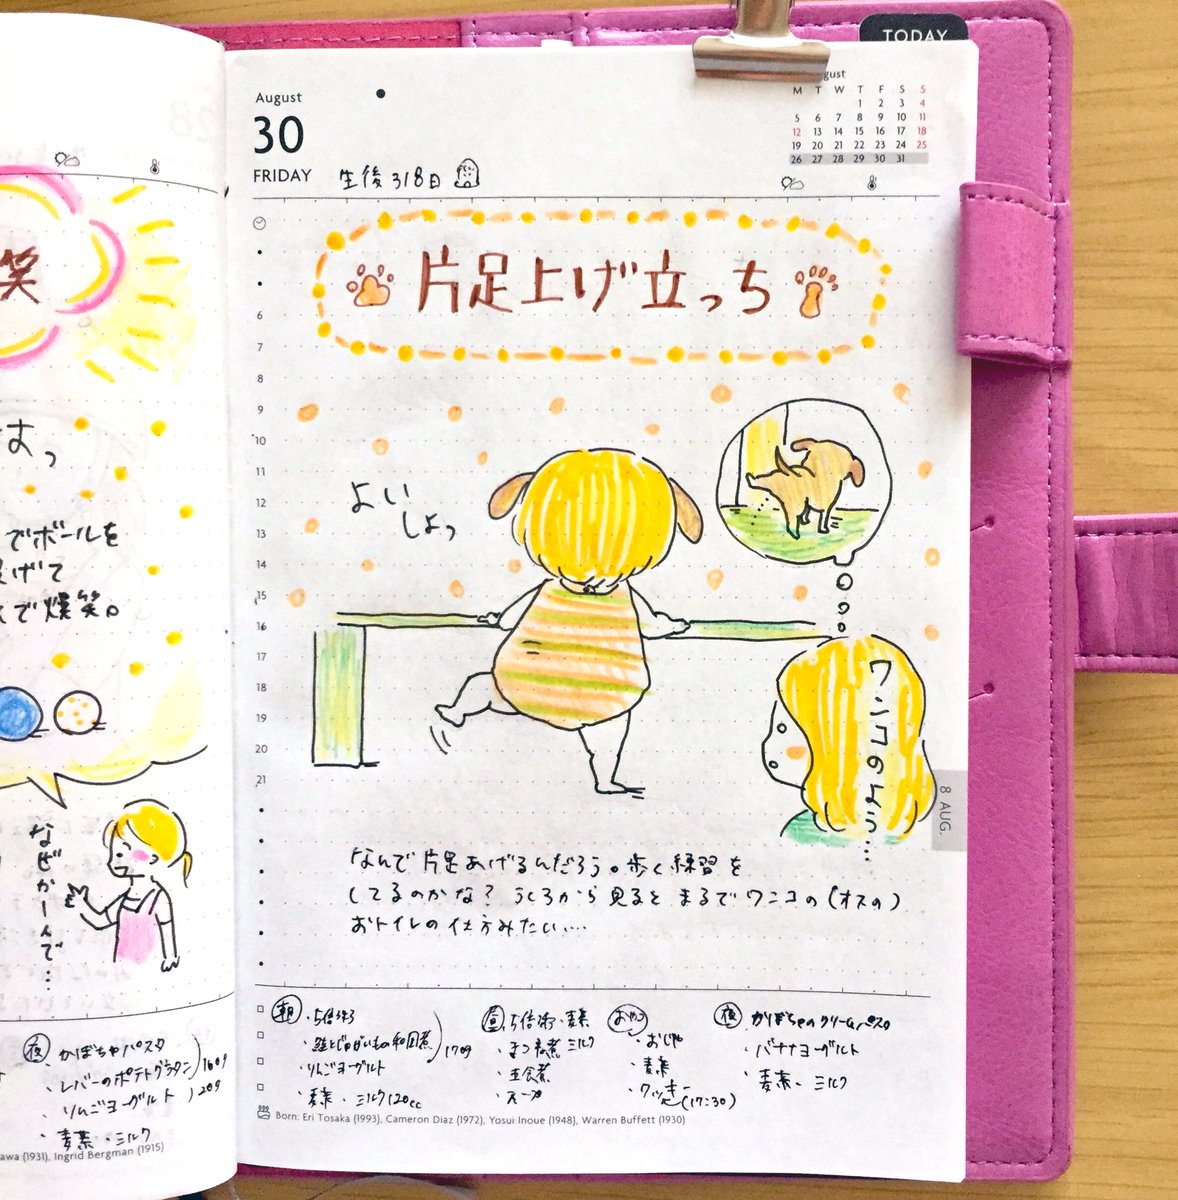 笑
よっ
でボールを
げて
で爆笑。
なぜかーんで…
夜 かぼちゃパスタ
・レバーのポテトグラタン 160g
・りんごヨーグルト 120g
・麦茶・ミルク
(1931), Ingrid Bergman (1915)
TODAY
August
30
FRIDAY
生後318日
gust
M T W T F S S
1 2 3 4
5 6 7 8 9 10 11
12 13 14 15 16 17 18
19 20 21 22 23 24 25
26 27 28 29 30 31
片足上げ立っち
6
7
8
9
10
11
12
13
14
15
16
17
18
19
20
21
よい
しょっ
ワンコのよう…
8 AUG.
なんで片足あげるんだろう。歩く練習を
してるのかな？うしろから見るとまるでワンコの(オスの)
おトイレの仕方みたい…
朝 ・5倍粥
・鮭とじゃがいもの和風煮 170g
・りんごヨーグルト
・麦茶・ミルク120cc
昼 ・5倍粥・麦茶
ミルク
・スープ
おやつ
・おじや
・麦茶
・クッキー (17:30)
夜 かぼちゃのクリームパスタ
・バナナヨーグルト
・麦茶・ミルク
Born: Eri Tosaka (1993), Cameron Diaz (1972), Yosui Inoue (1948), Warren Buffett (1930)